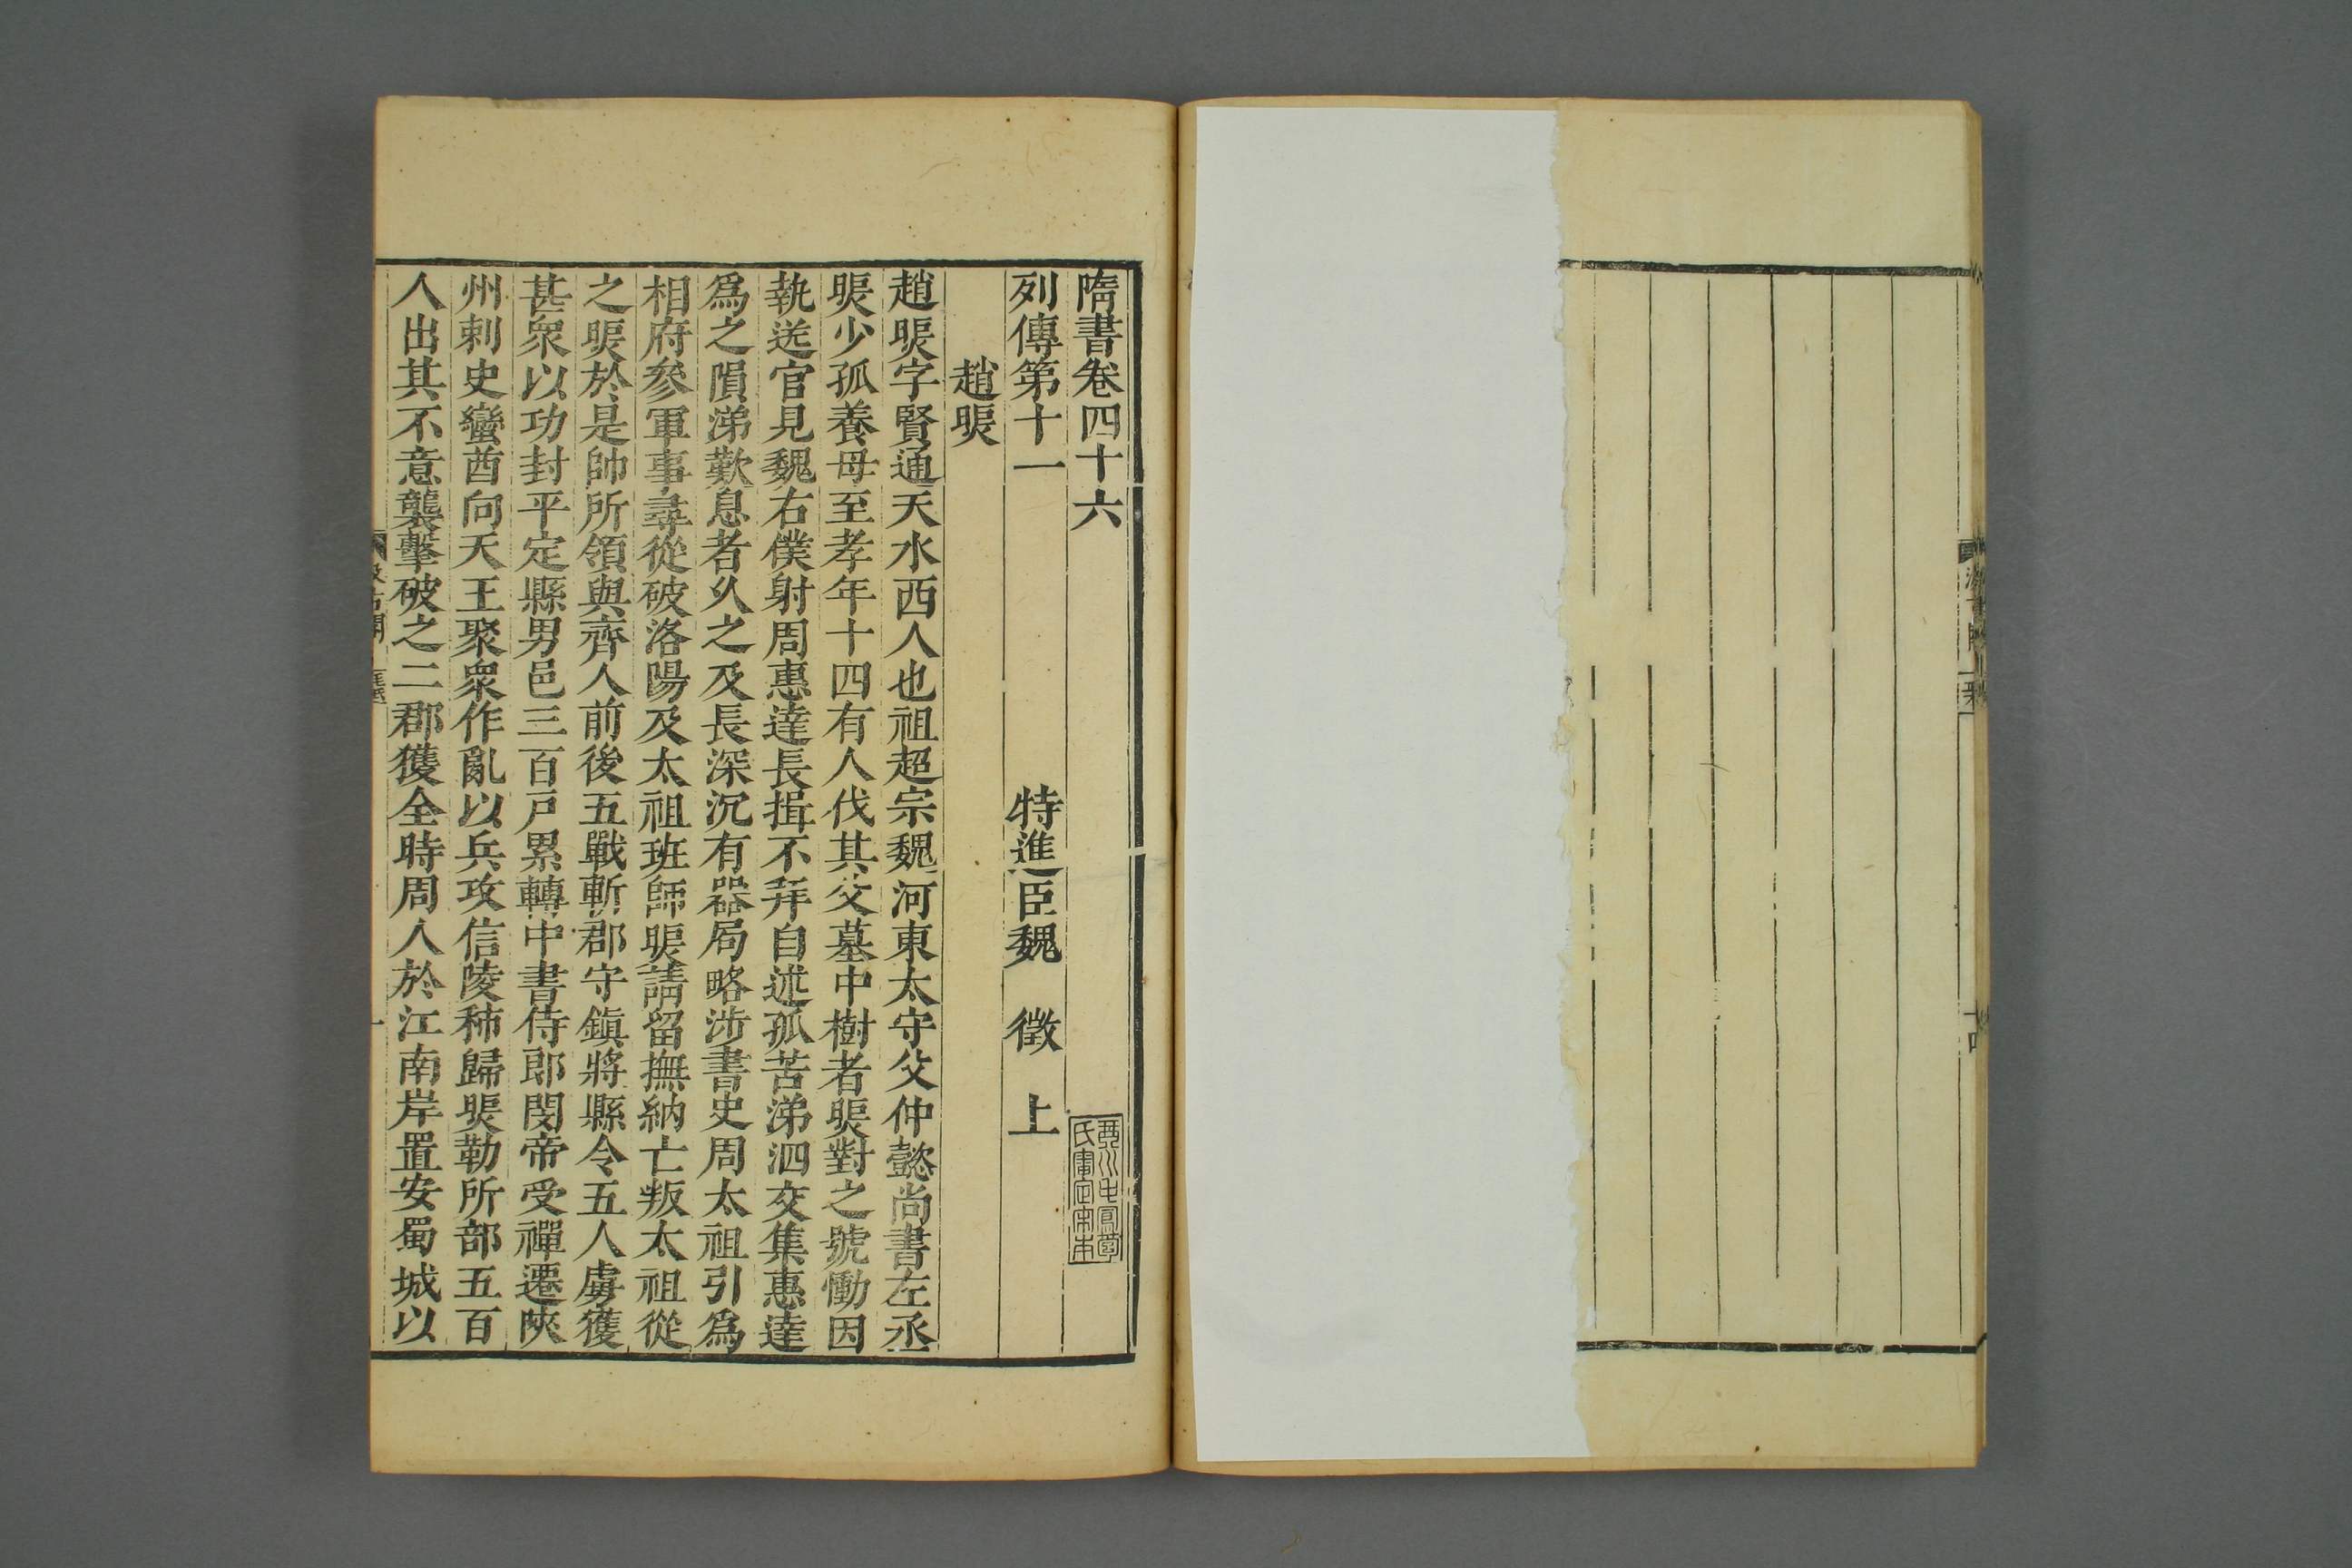 隋書卷四十六
列傳第十一 特進臣魏 徵 上
趙煚
趙煚字賢通天水西人也祖超宗魏河東太守父仲懿尚書左丞
煚少孤養母至孝年十四有人伐其父墓中樹者煚對之號慟因
執送官見魏右僕射周惠達長揖不拜自述孤苦涕泗交集惠達
爲之隕涕歎息者久之及長深沉有器局略涉書史周太祖引爲
相府參軍事尋從破洛陽及太祖班師煚請留撫納亡叛太祖從
之煚於是帥所領與齊人前後五戰斬郡守鎭將縣令五人虜獲
甚衆以功封平定縣男邑三百戸累轉中書侍郎閔帝受禪遷陜
州刺史蠻酋向天王聚衆作亂以兵攻信陵秭歸煚勒所部五百
人出其不意襲擊破之二郡獲全時周人於江南岸置安蜀城以